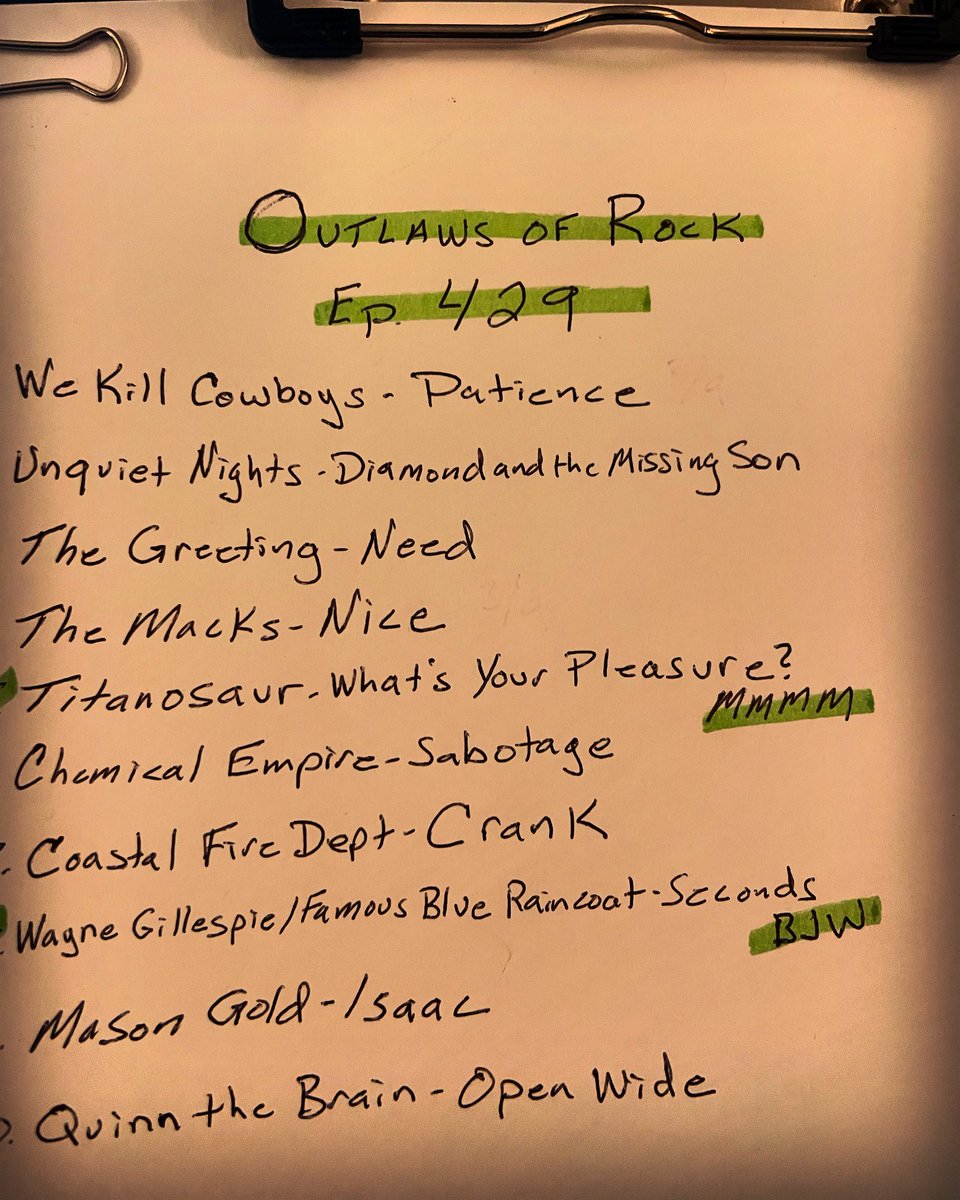 Outlaws of Rock
Ep. 429
We Kill Cowboys - Patience
Unquiet Nights - Diamond and the Missing Son
The Greeting - Need
The Macks - Nice
Titanosaur - What's Your Pleasure?
MMMM
Chemical Empire - Sabotage
Coastal Fire Dept - Crank
Wayne Gillespie/Famous Blue Raincoat - Seconds
BJW
Mason Gold - Isaac
Quinn the Brain - Open Wide